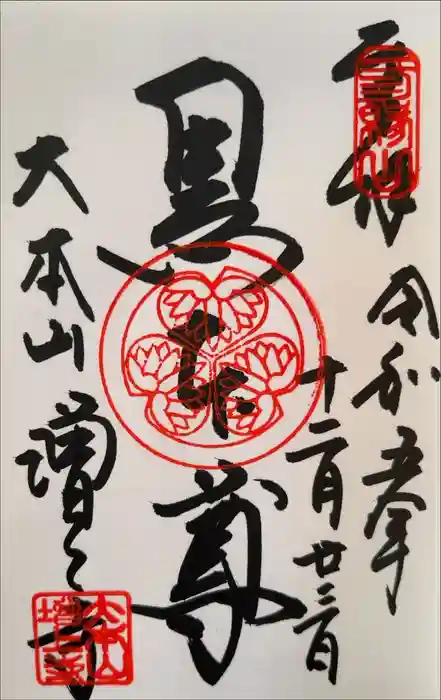 奉拝
令和五年
十二月廿三日
黒本尊
大本山
増上寺
三縁山
大本山増上寺